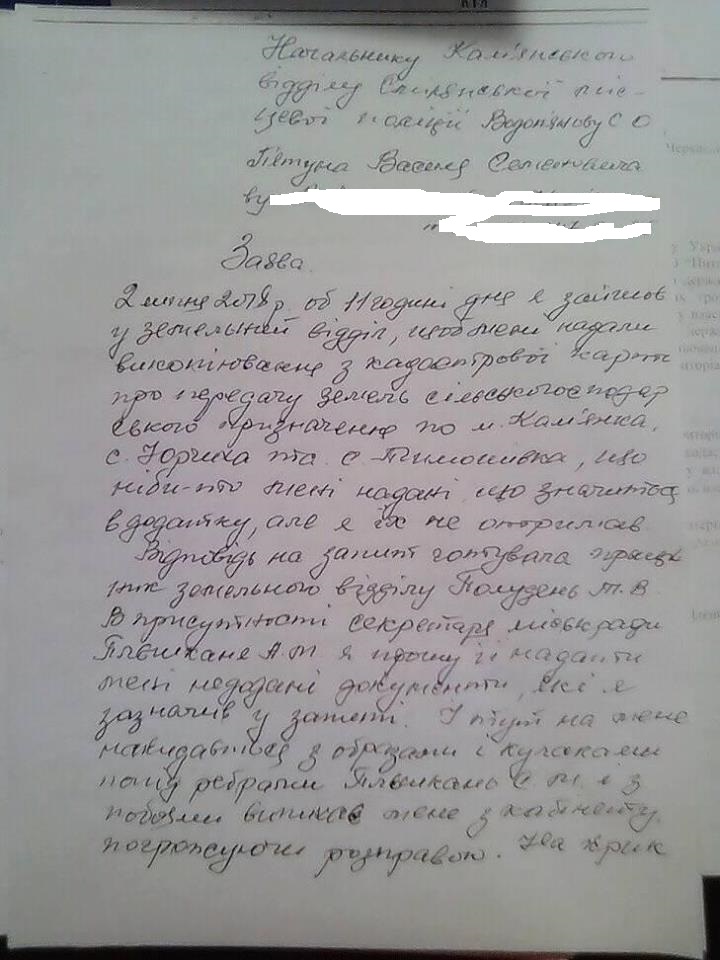 Начальнику Кам'янського
відділу Смілянської міс-
цевої поліції Водопянову С О
Пєтуна Василя Семеновича
ву
Заява.
2 липня 2018 р. об 11 годині дня я зайшов
у земельний відділ, щоб мені надали
викопіювання з кадастрової карти
про передачу земель сільськогосподар
ського призначення по м. Кам'янка,
с. Юрчиха та с. Тимошівка, що
ніби-то мені надані що значиться
в додатку, але я їх не отримав
Відповідь на запит готувала праців
ник земельного відділу Полудень Т. В.
В присутності секретаря міськради
А. М. я прошу її надати
мені недодані документи, які я
зазначив у запиті. І тут на мене
накидається з образами і кулаками
попід ребрами А. М. і з
побоями виштовхав мене з кабінету
погрожуючи розправою. На крик